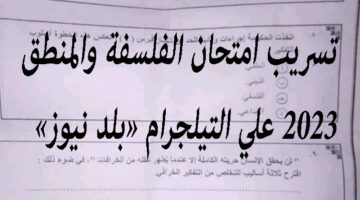 تسريب امتحان الفلسفة والمنطق
2023 علي التيلجرام «بلد نيوز»
العلمي
الديني
الفلسفي
" لن يحقق الإنسان حريته الكاملة إلا عندما يطهر عقله من الخرافات "، في ضوء ذلك :
اقترح ثلاثة أساليب للتخلص من التفكير الخرافي.